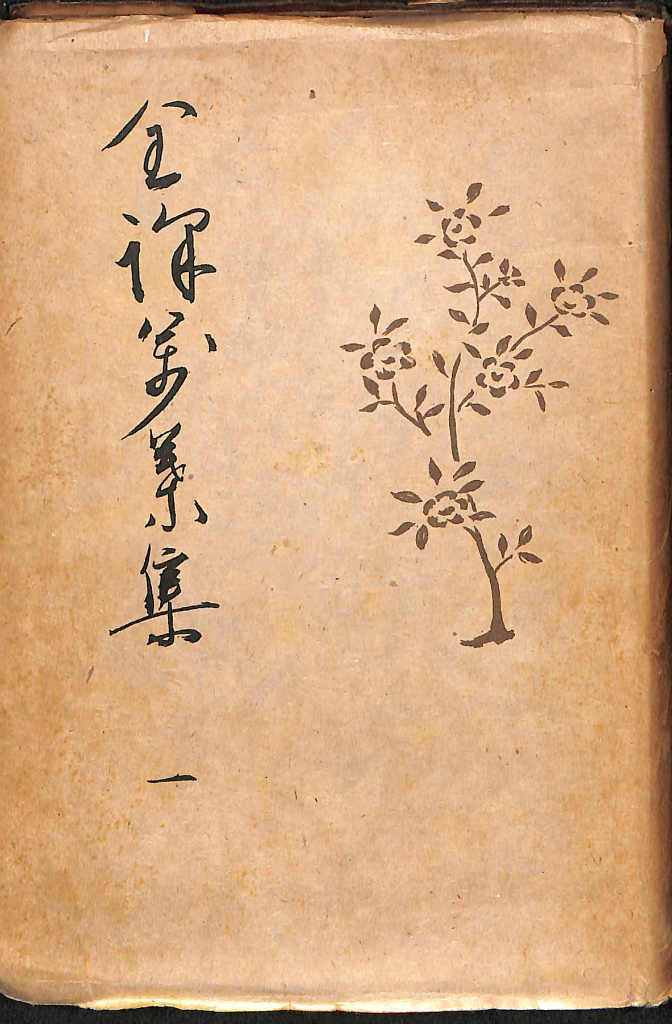 全譯萬葉集
一